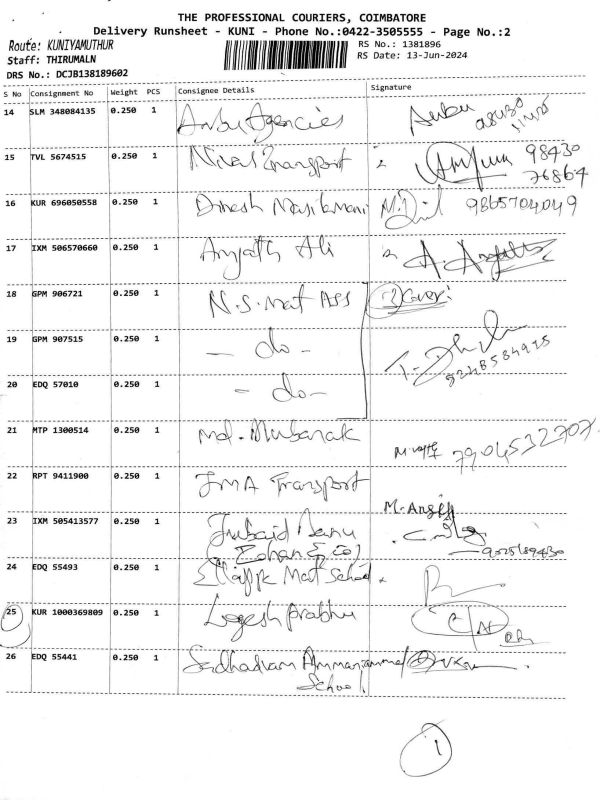 THE PROFESSIONAL COURIERS, COIMBATORE
Delivery Runsheet - KUNI - Phone No.:0422-3505555 - Page No.:2
Route: KUNIYAMUTHUR
RS No.: 1381896
Staff: THIRUMALN
RS Date: 13-Jun-2024
DRS No.: DCJB138189602
S No Consignment No Weight PCS Consignee Details Signature
14 SLM 348084135 0.250 1 Anbu Agencies Anbu
15 TVL 5674515 0.250 1 Transport 98430
76864
16 KUR 696050558 0.250 1 Dinesh Manikmani 9865704049
17 IXM 506570660 0.250 1 Ali A.
18 GPM 906721 0.250 1 N.S. Mat Ass 3 Cover
19 GPM 907515 0.250 1 - do -
20 EDQ 57010 0.250 1 - do -
21 MTP 1300514 0.250 1 Md. Mubarak 7904532707
22 RPT 9411900 0.250 1 JMA Transport
23 IXM 505413577 0.250 1 Jubaid Banu
(Zohan & Co)
24 EDQ 55493 0.250 1 Mat School
25 KUR 1000369809 0.250 1 Logesh Prabhu
26 EDQ 55441 0.250 1 Ammaniammal
School
1